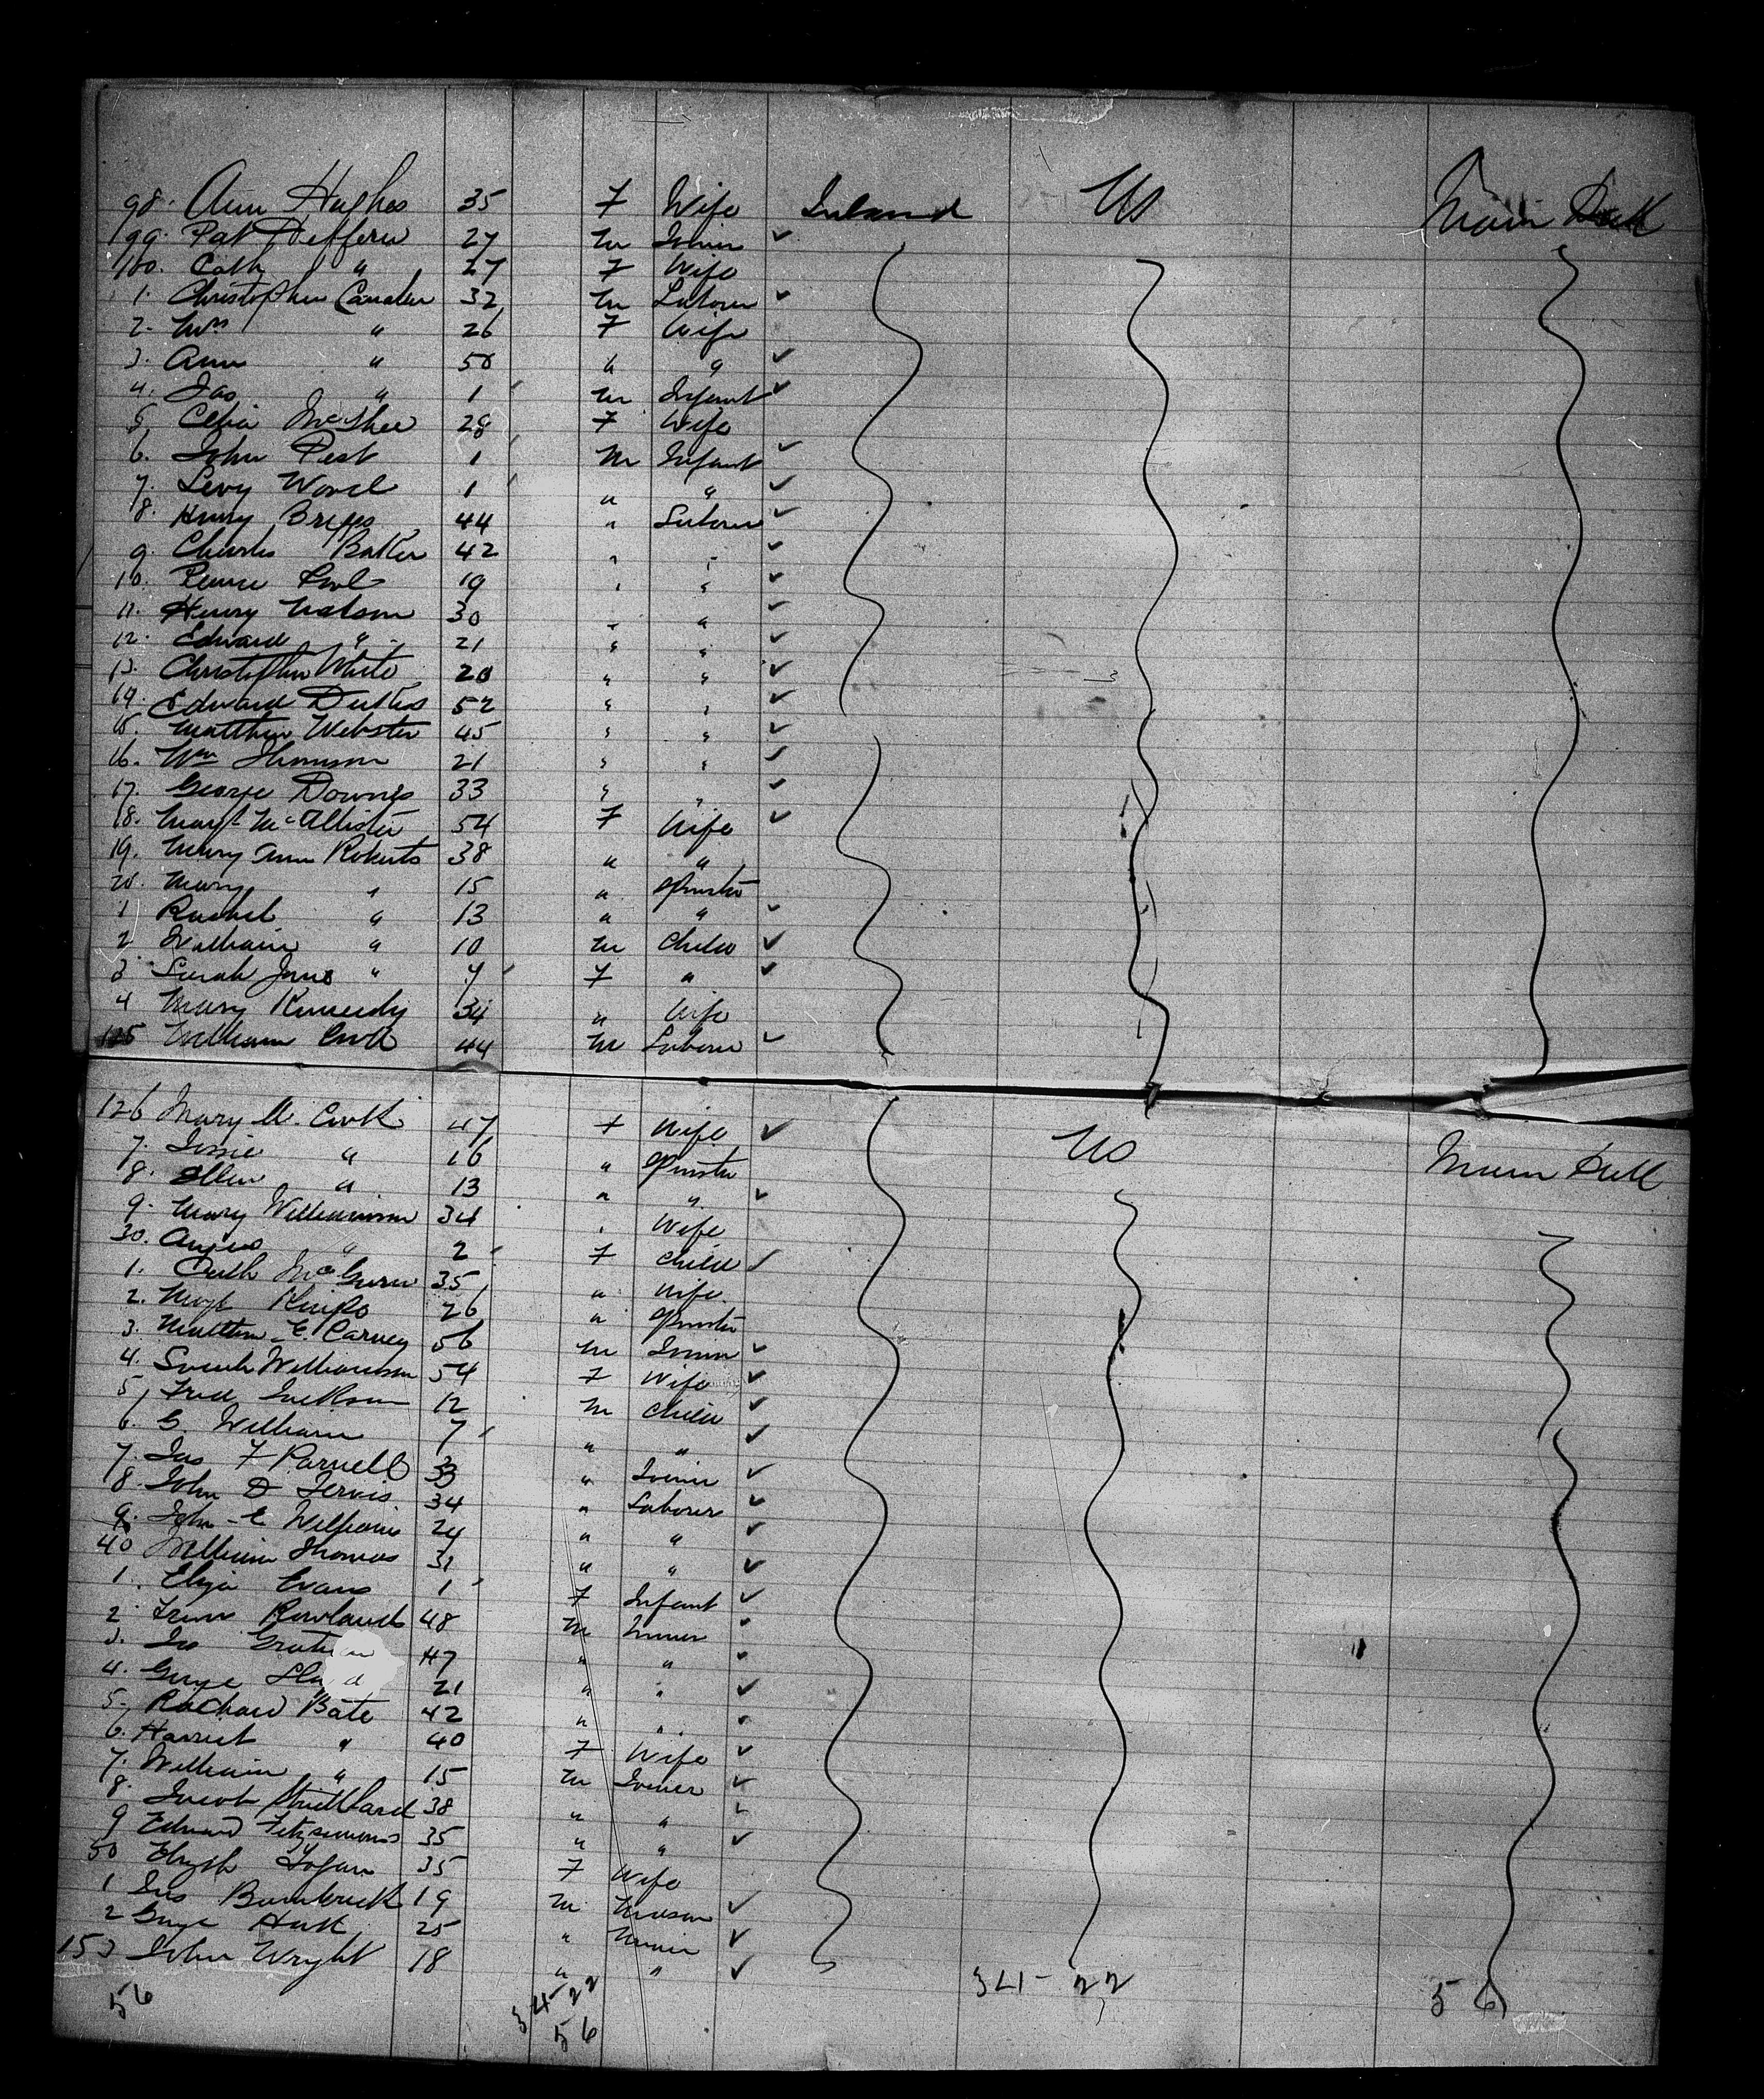 98. Ann Hughes 35 F Wife Ireland US Main Deck
99. Pat 27 m Joiner ✓
100. Cath " 27 F Wife
1. Christopher 32 m Laborer ✓
2. Mrs " 26 F Wife
3. Ann " 50 " " ✓
4. Jas " 1 m Infant ✓
5. Celia McGhee 28 F Wife
6. John Pest 1 m Infant ✓
7. Levy Wood 1 " " ✓
8. Henry Briggs 44 " Laborer ✓
9. Charles Baker 42 " " ✓
10. 19 " " ✓
11. Henry Watson 30 " " ✓
12. Edward " 21 " " ✓
13. Christopher White 20 " " ✓
14. Edward 52 " " ✓
15. Matthew Webster 45 " " ✓
16. Wm Thomson 21 " " ✓
17. George Downes 33 " " ✓
18. Margt McAllister 54 F Wife ✓
19. Mary Ann Roberts 38 " "
20. Mary " 15 " Spinster
1 Rachel " 13 " " ✓
2 William " 10 m Child ✓
3 Sarah Jane " 7 F " ✓
4 Mary Kennedy 34 " Wife
125 William Cook 44 m Laborer ✓
126 Mary A. Cook 47 F Wife ✓ US Main Deck
7. Jessie " 16 " Spinster
8. Ellen " 13 " " ✓
9. Mary Williamson 34 " Wife
30. Agnes " 2 F Child ✓
1. Cath McGurn 35 " Wife
2. Margt 26 " Spinster
3. Matthew E. Carney 56 m Joiner ✓
4. Sarah Williamson 54 F Wife ✓
5. Fred Jackson 12 m Child ✓
6. G. William 7 " " ✓
7. Jas F Parnell 33 " Joiner ✓
8. John D Jervis. 34 " Laborer ✓
9. John E. Williams 24 " " ✓
40 William Thomas 31 " " ✓
1. Eliza Evans 1 F Infant ✓
2. Rowlands 48 m Miner ✓
3. 47 " " ✓
4. George 21 " " ✓
5. Richard Bate 42 " " ✓
6. Harriet " 40 F Wife ✓
7. William " 15 m Joiner ✓
8. Jacob 38 " " ✓
9 Edward Fitzsimmons 35 " " ✓
50 Elizth 35 F Wife
1 Bambrick 19 m Mason ✓
2 George 25 " Miner ✓
153 John Wright 18 " " ✓
56 34-22 56 34-22 56